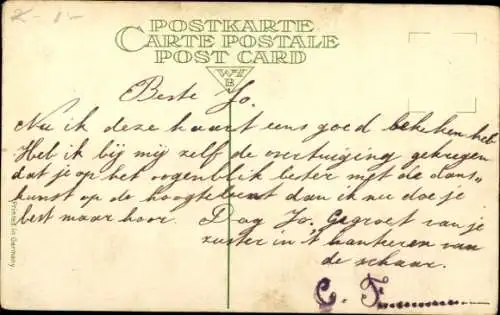 2.-
POSTKARTE
CARTE POSTALE
POST CARD
W B
Beste Jo.
Nu ik deze kaart eens goed bekeken heb
Heb ik bij mij zelf de overtuiging gekregen
dat je op het oogenblik beter met de dans-
kunst op de hoogte bent dan ik nu doe je
best maar hoor. Dag Jo. Gegroet van je
zuster in 't hanteren van
de schaar.
C. F
Printed in Germany